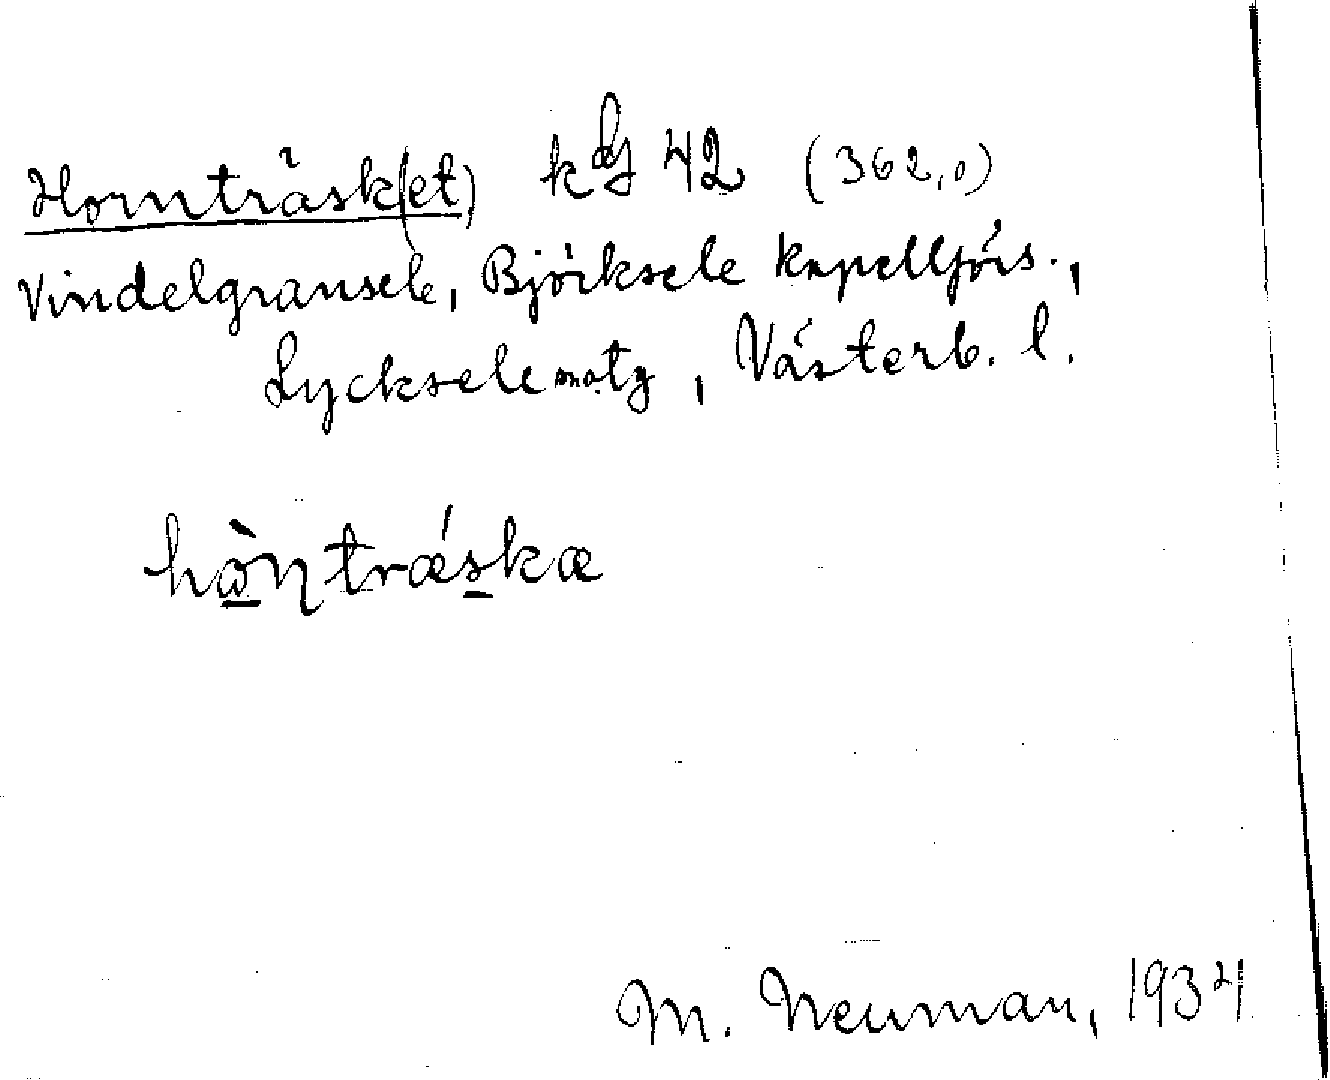 Hornträsk(et) kbl 42 (362,0)
Vindelgransele, Björksele kapellförs.,
Lycksele sn o tg, Västerb. l.
hòn̩træ̀ska
M. Neuman, 1934